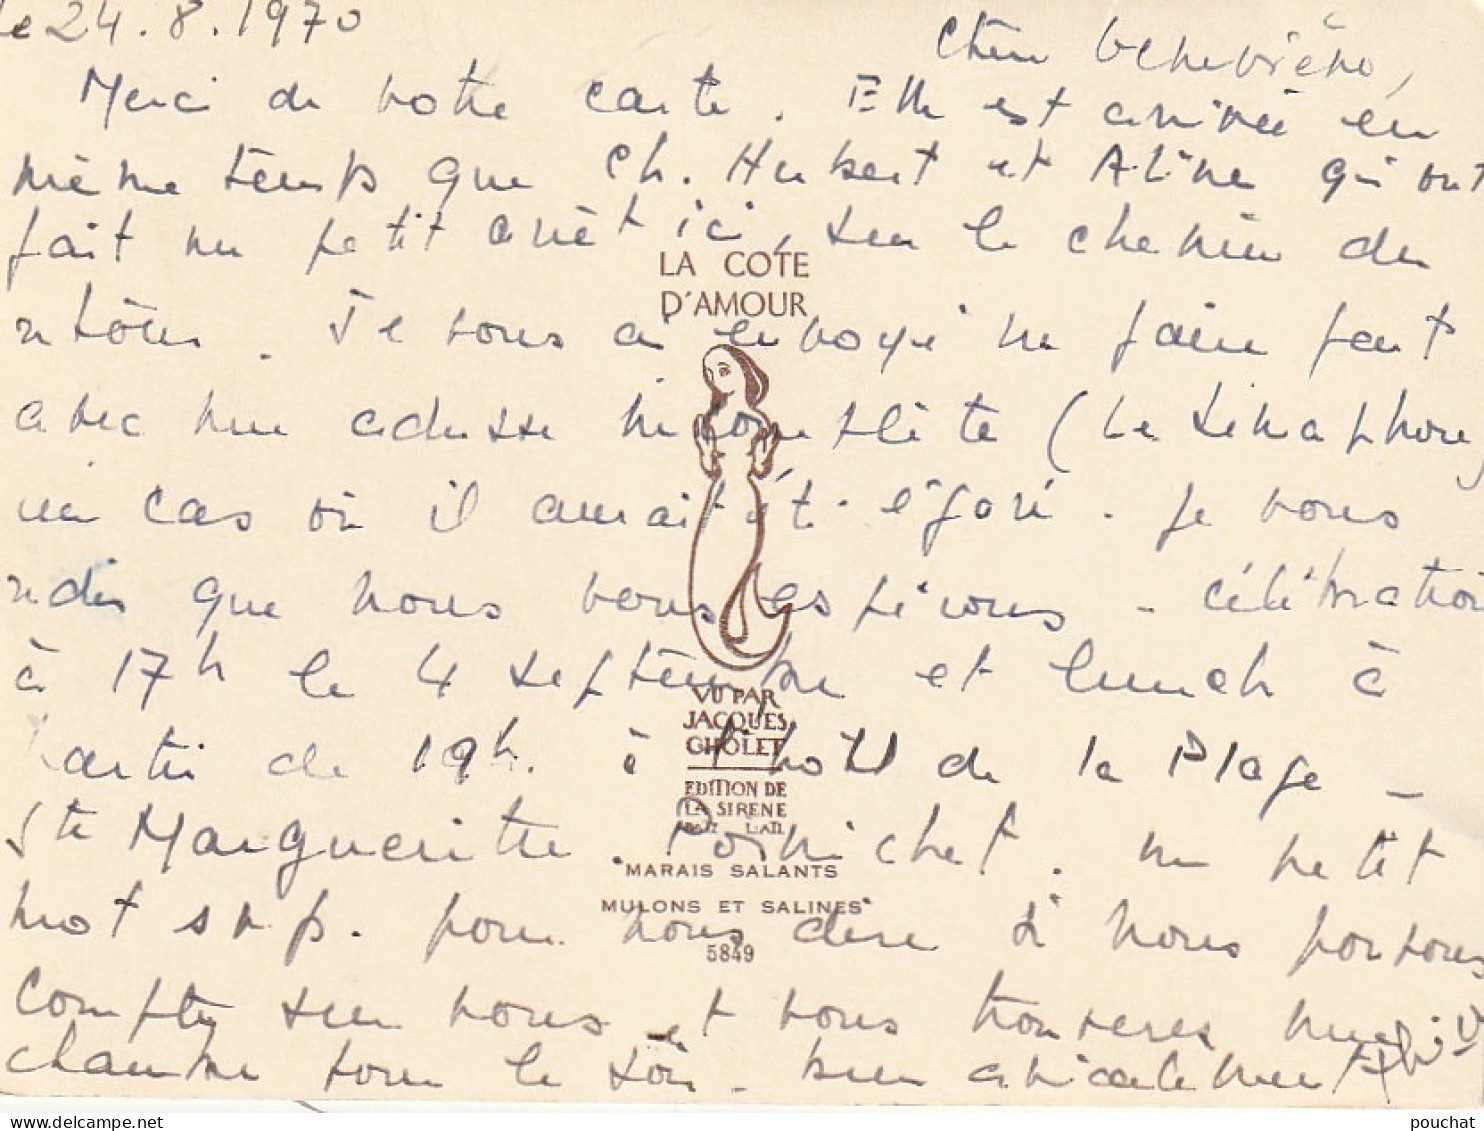 le 24.8.1970
Chère Geneviève,
Merci de votre carte. Elle est arrivée en
même temps que Ch. Hubert et Aline qui ont
fait un petit arrêt ici, sur le chemin du
retour. Je vous ai envoyé un faire part
avec une adresse incomplète (Le Sémaphore)
au cas où il aurait été égaré. je vous
redis que nous vous espérons - célébration
à 17h le 4 septembre et lunch à
partir de 19h. à l'hôtel de la Plage -
Ste Marguerite. Pornichet. un petit
mot s.v.p. pour nous dire si nous pouvons
compter sur vous et vous trouverez une
chambre pour le soir. bien amicalement
LA COTE
D'AMOUR
VU PAR
JACQUES
CHOLET
EDITION DE
LA SIRENE
"MARAIS SALANTS
MULONS ET SALINES"
5849
pouchat